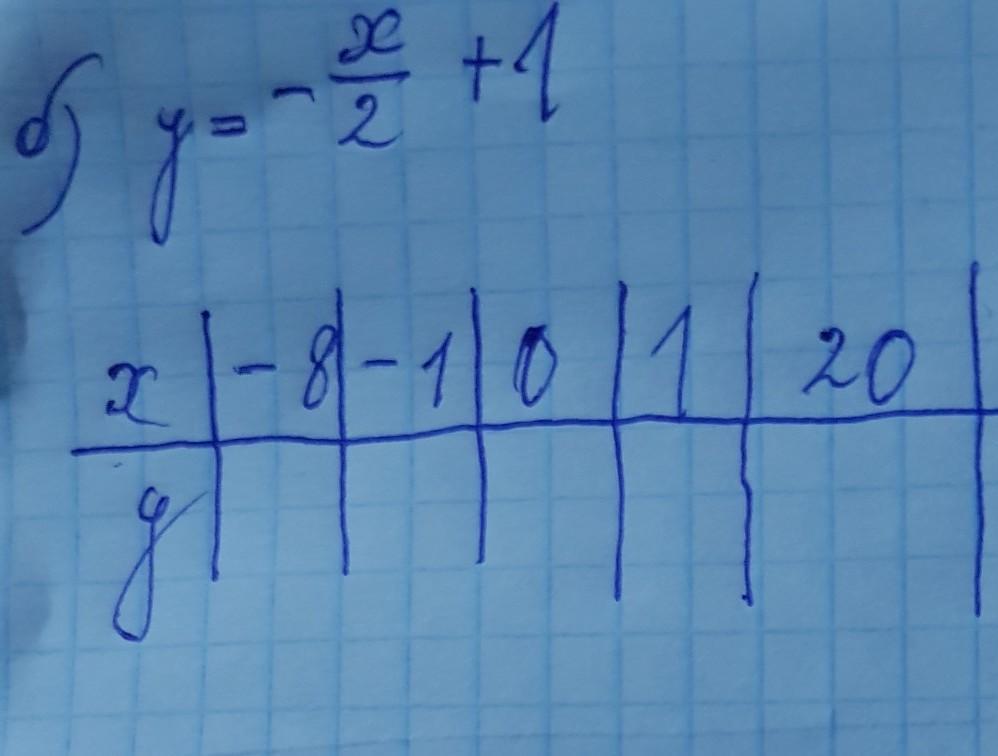 б) y = - x/2 + 1
x | -8 | -1 | 0 | 1 | 20 |
y